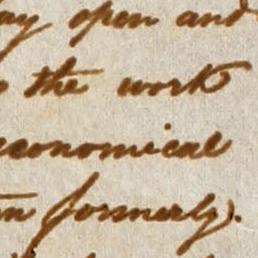 open and
the work
economical
formerly.